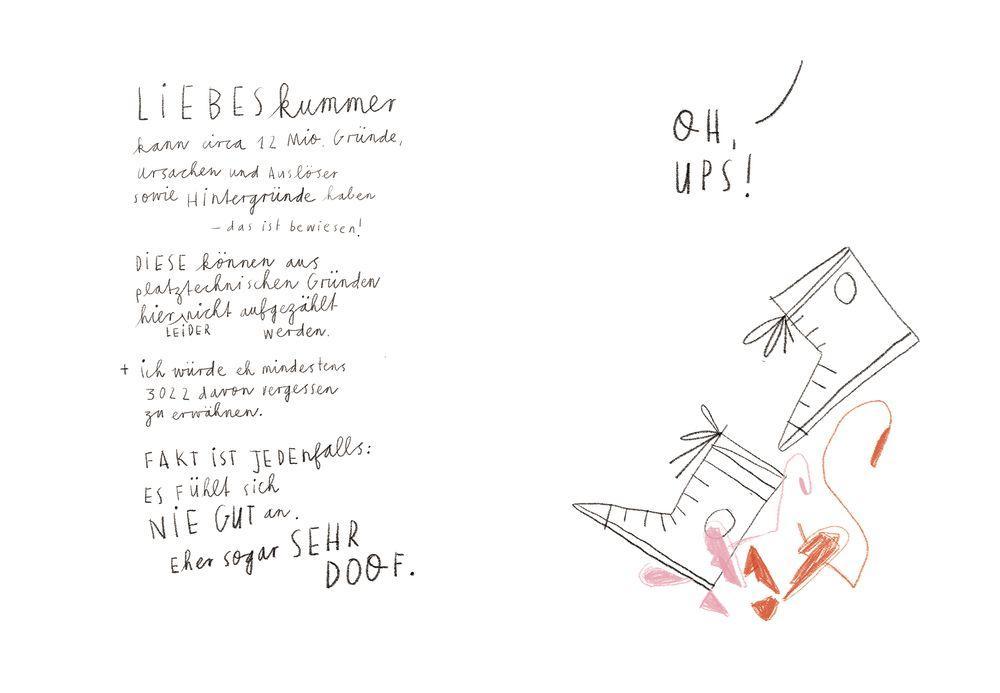 LiEBESkummer
kann circa 12 Mio. Gründe,
Ursachen und Auslöser
sowie Hintergründe haben
– das ist bewiesen!
DiESE können aus
platztechnischen Gründen
hier nicht aufgezählt
LEiDER werden.
+ ich würde eh mindestens
3022 davon vergessen
zu erwähnen.
FAKT iST JEDENfalls:
ES Fühlt sich
NiE GUT an.
Eher sogar SEHR
DOOF.
OH,
UPS!